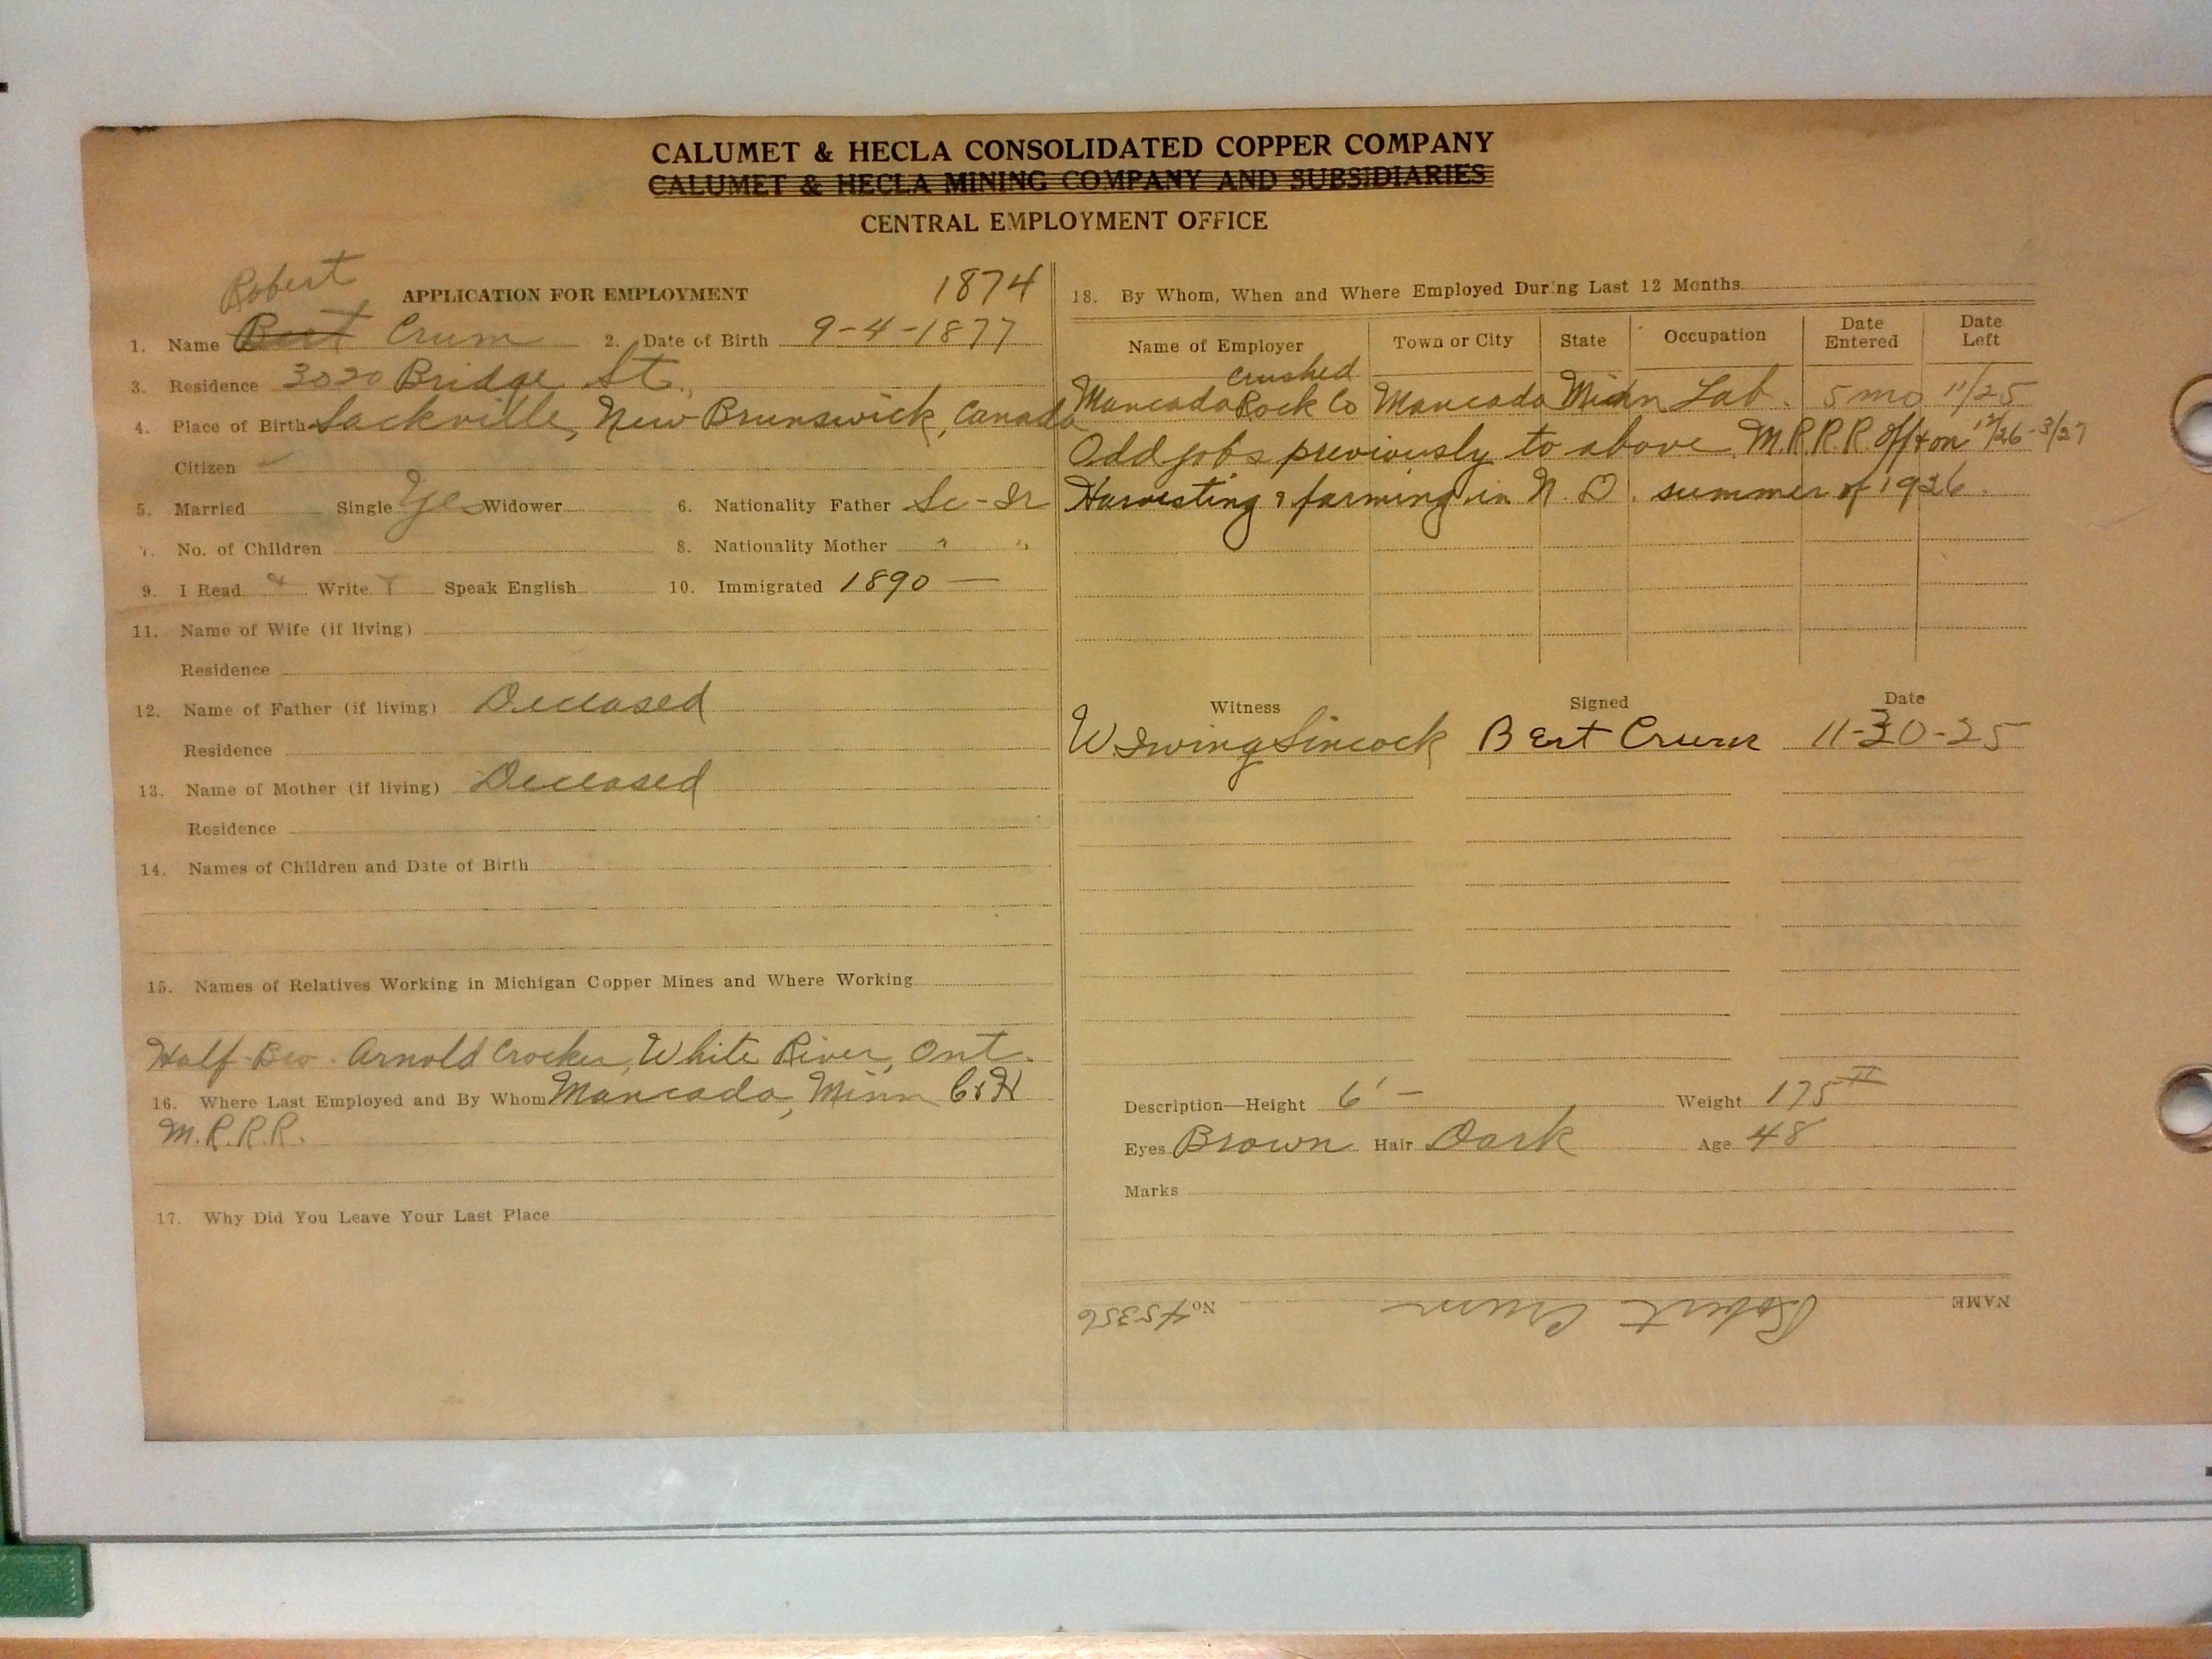 CALUMET & HECLA CONSOLIDATED COPPER COMPANY
CALUMET & HECLA MINING COMPANY AND SUBSIDIARIES
CENTRAL EMPLOYMENT OFFICE
Robert
APPLICATION FOR EMPLOYMENT 1874
1. Name Bert Crum 2. Date of Birth 9-4-1877
3. Residence 3020 Bridge St.
4. Place of Birth Sackville, New Brunswick, Canada
Citizen
5. Married Single Yes Widower 6. Nationality Father Sc-Ir
7. No. of Children 8. Nationality Mother " "
9. I Read Write Speak English 10. Immigrated 1890 —
11. Name of Wife (if living)
Residence
12. Name of Father (if living) Deceased
Residence
13. Name of Mother (if living) Deceased
Residence
14. Names of Children and Date of Birth
15. Names of Relatives Working in Michigan Copper Mines and Where Working
Half Bro. Arnold Crocker, White River, Ont.
16. Where Last Employed and By Whom Mancado, Minn C&H
M.R.R.R.
17. Why Did You Leave Your Last Place
18. By Whom, When and Where Employed During Last 12 Months
Name of Employer Town or City State Occupation Date Entered Date Left
crushed
Mancado Rock Co Mancado Minn Lab. 5 mo 11/25
Odd jobs previously to above. M.R.R.R. off & on 12/26-3/27
Harvesting & farming in N. D. summer of 1926.
Witness Signed Date
W Irving Sincock Bert Crum 11-30-25
Description—Height 6' — Weight 175
Eyes Brown Hair Dark Age 48
Marks
NAME Robert Crum No. 45356